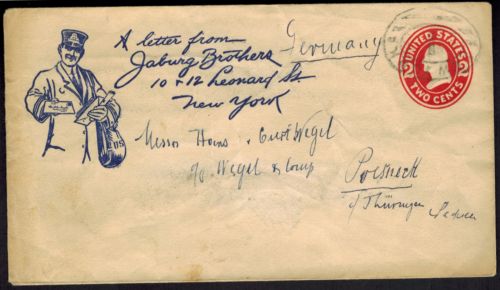 A letter from
Jaburg Brothers
10 + 12 Leonard St.
New York
Germany
UNITED STATES
2 2
TWO CENTS
US
Messrs Hans & Curt Wegel
c/o Wegel & Comp
Poesneck
i/Thüringen